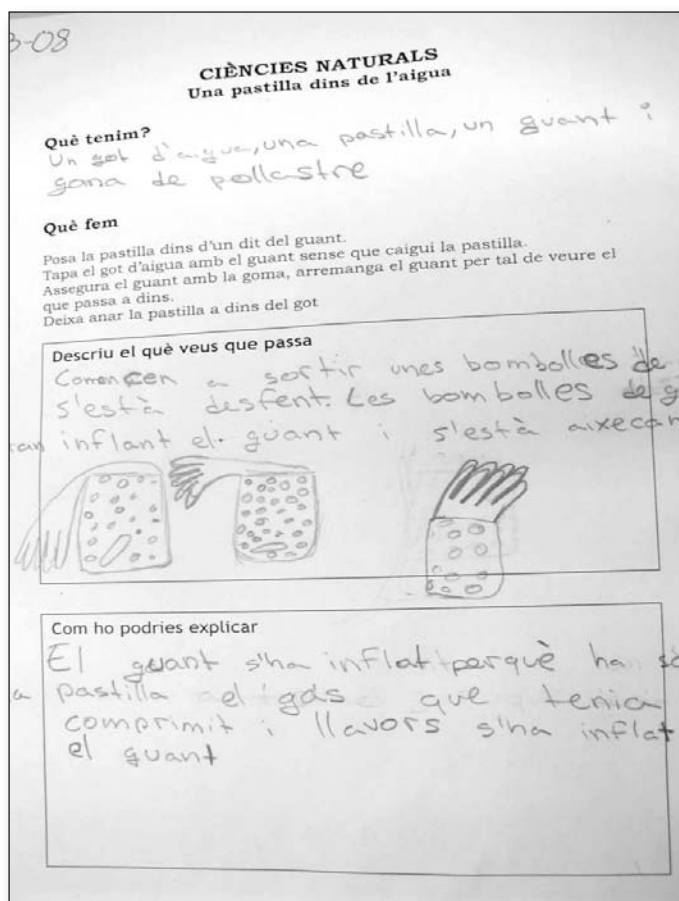 3-08
CIÈNCIES NATURALS
Una pastilla dins de l'aigua
Què tenim?
Un got d'aigua, una pastilla, un guant i
goma de pollastre
Què fem
Posa la pastilla dins d'un dit del guant.
Tapa el got d'aigua amb el guant sense que caigui la pastilla.
Assegura el guant amb la goma, arremanga el guant per tal de veure el
que passa a dins.
Deixa anar la pastilla a dins del got
Descriu el què veus que passa
Comencen a sortir unes bombolles de
s'està desfent. Les bombolles de g
van inflant el guant i s'està aixecan
Com ho podries explicar
El guant s'ha inflat perquè ha so
a pastilla el gas que tenia
comprimit i llavors s'ha inflat
el guant